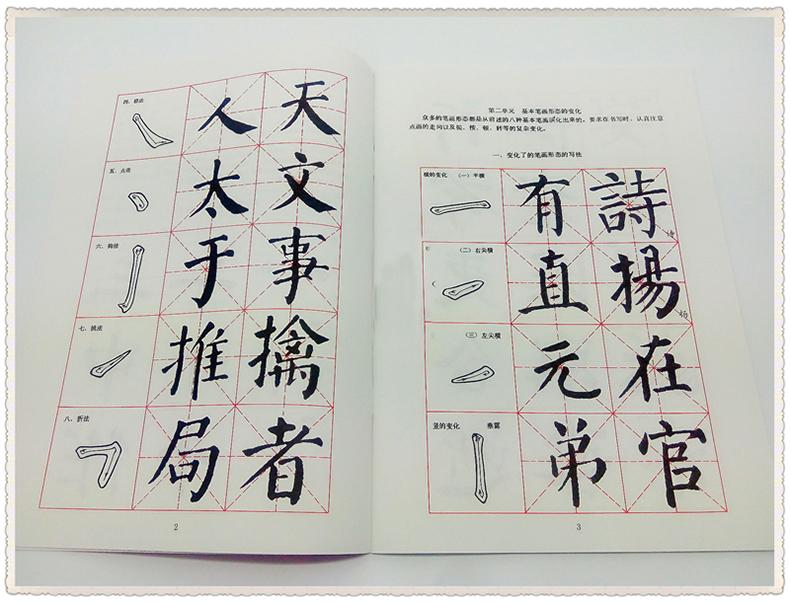 四、捺法
人 天
五、点法
太 文
六、钩法
于 事
七、挑法
推 擒
八、折法
局 者
2
第二单元 基本笔画形态的变化
众多的笔画形态都是从前述的八种基本笔画演化出来的。要求在书写时，认真注意
点画的走向以及提、按、顿、转等的复杂变化。
一、变化了的笔画形态的写法
横的变化 （一）平横
有 詩
（二）右尖横
直 揚
（三）左尖横
元 在
竖的变化 垂露
弟 官
3